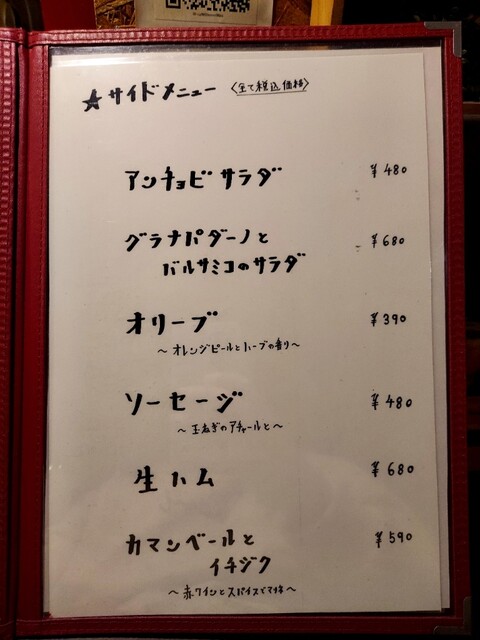 ★サイドメニュー 〈全て税込価格〉
アンチョビサラダ ¥480
グラナパダーノと ¥680
バルサミコのサラダ
オリーブ ¥390
〜オレンジピールとハーブの香り〜
ソーセージ ¥480
〜玉ねぎのアチャールと〜
生ハム ¥680
カマンベールと ¥590
イチジク
〜赤ワインとスパイスでマリネ〜